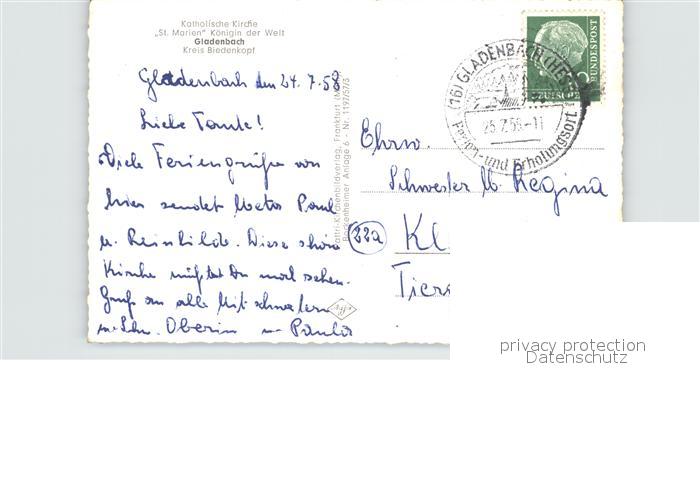 Katholische Kirche
"St. Marien" Königin der Welt
Gladenbach
Kreis Biedenkopf
Gladenbach den 24.7.58
Liebe Tante!
Viele Feriengrüße von
hier sendet Mater Paul
u. Reinhilde. Diese schöne
Kirche müßtest Du mal sehen.
Gruß an alle Mitschwestern
Schw. Oberin u. Paula
Kirchenbildverlag, Frankfurt
Bockenheimer Anlage 6 - Nr. 1197/57/5
DEUTSCHE BUNDESPOST
(16) GLADENBACH (HESS
25.7.58.-11
Ferien-und Erholungsort
Ehrw.
Schwester M. Regina
(22a) Kl
Tiers
privacy protection
Datenschutz